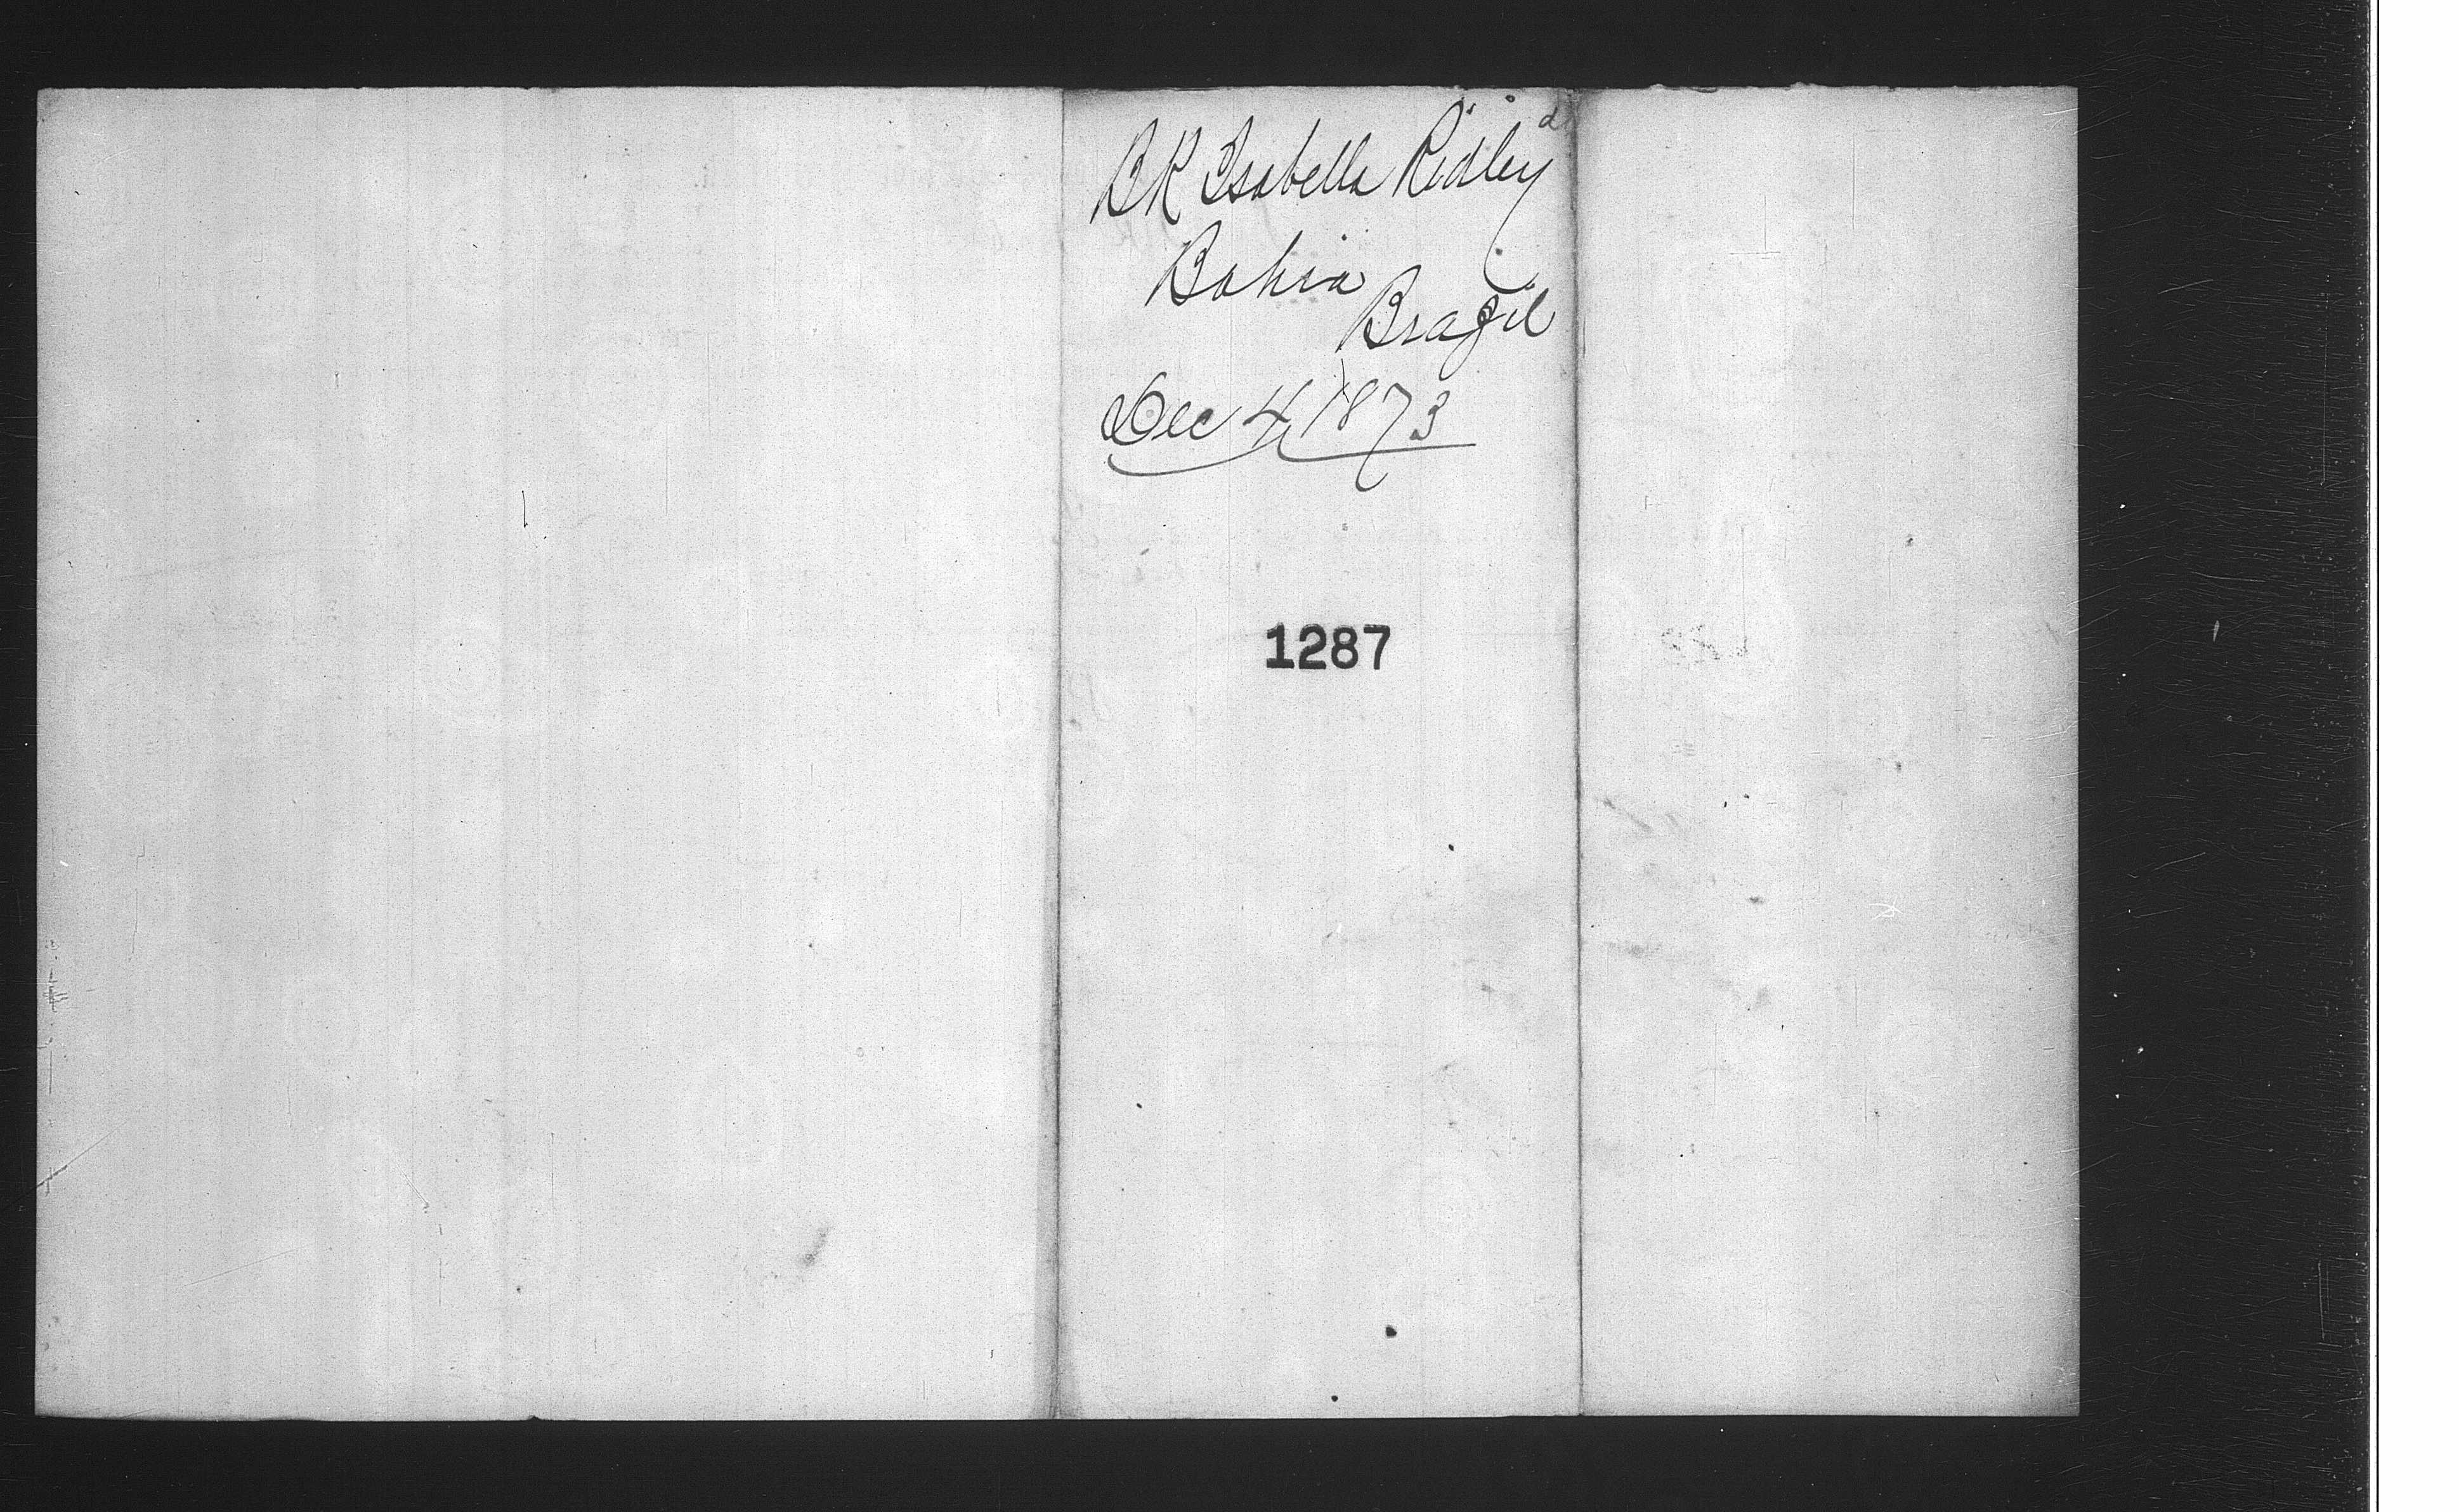 BK Isabella Ridley
Bahia
Brazil
Dec 4, 1873
1287